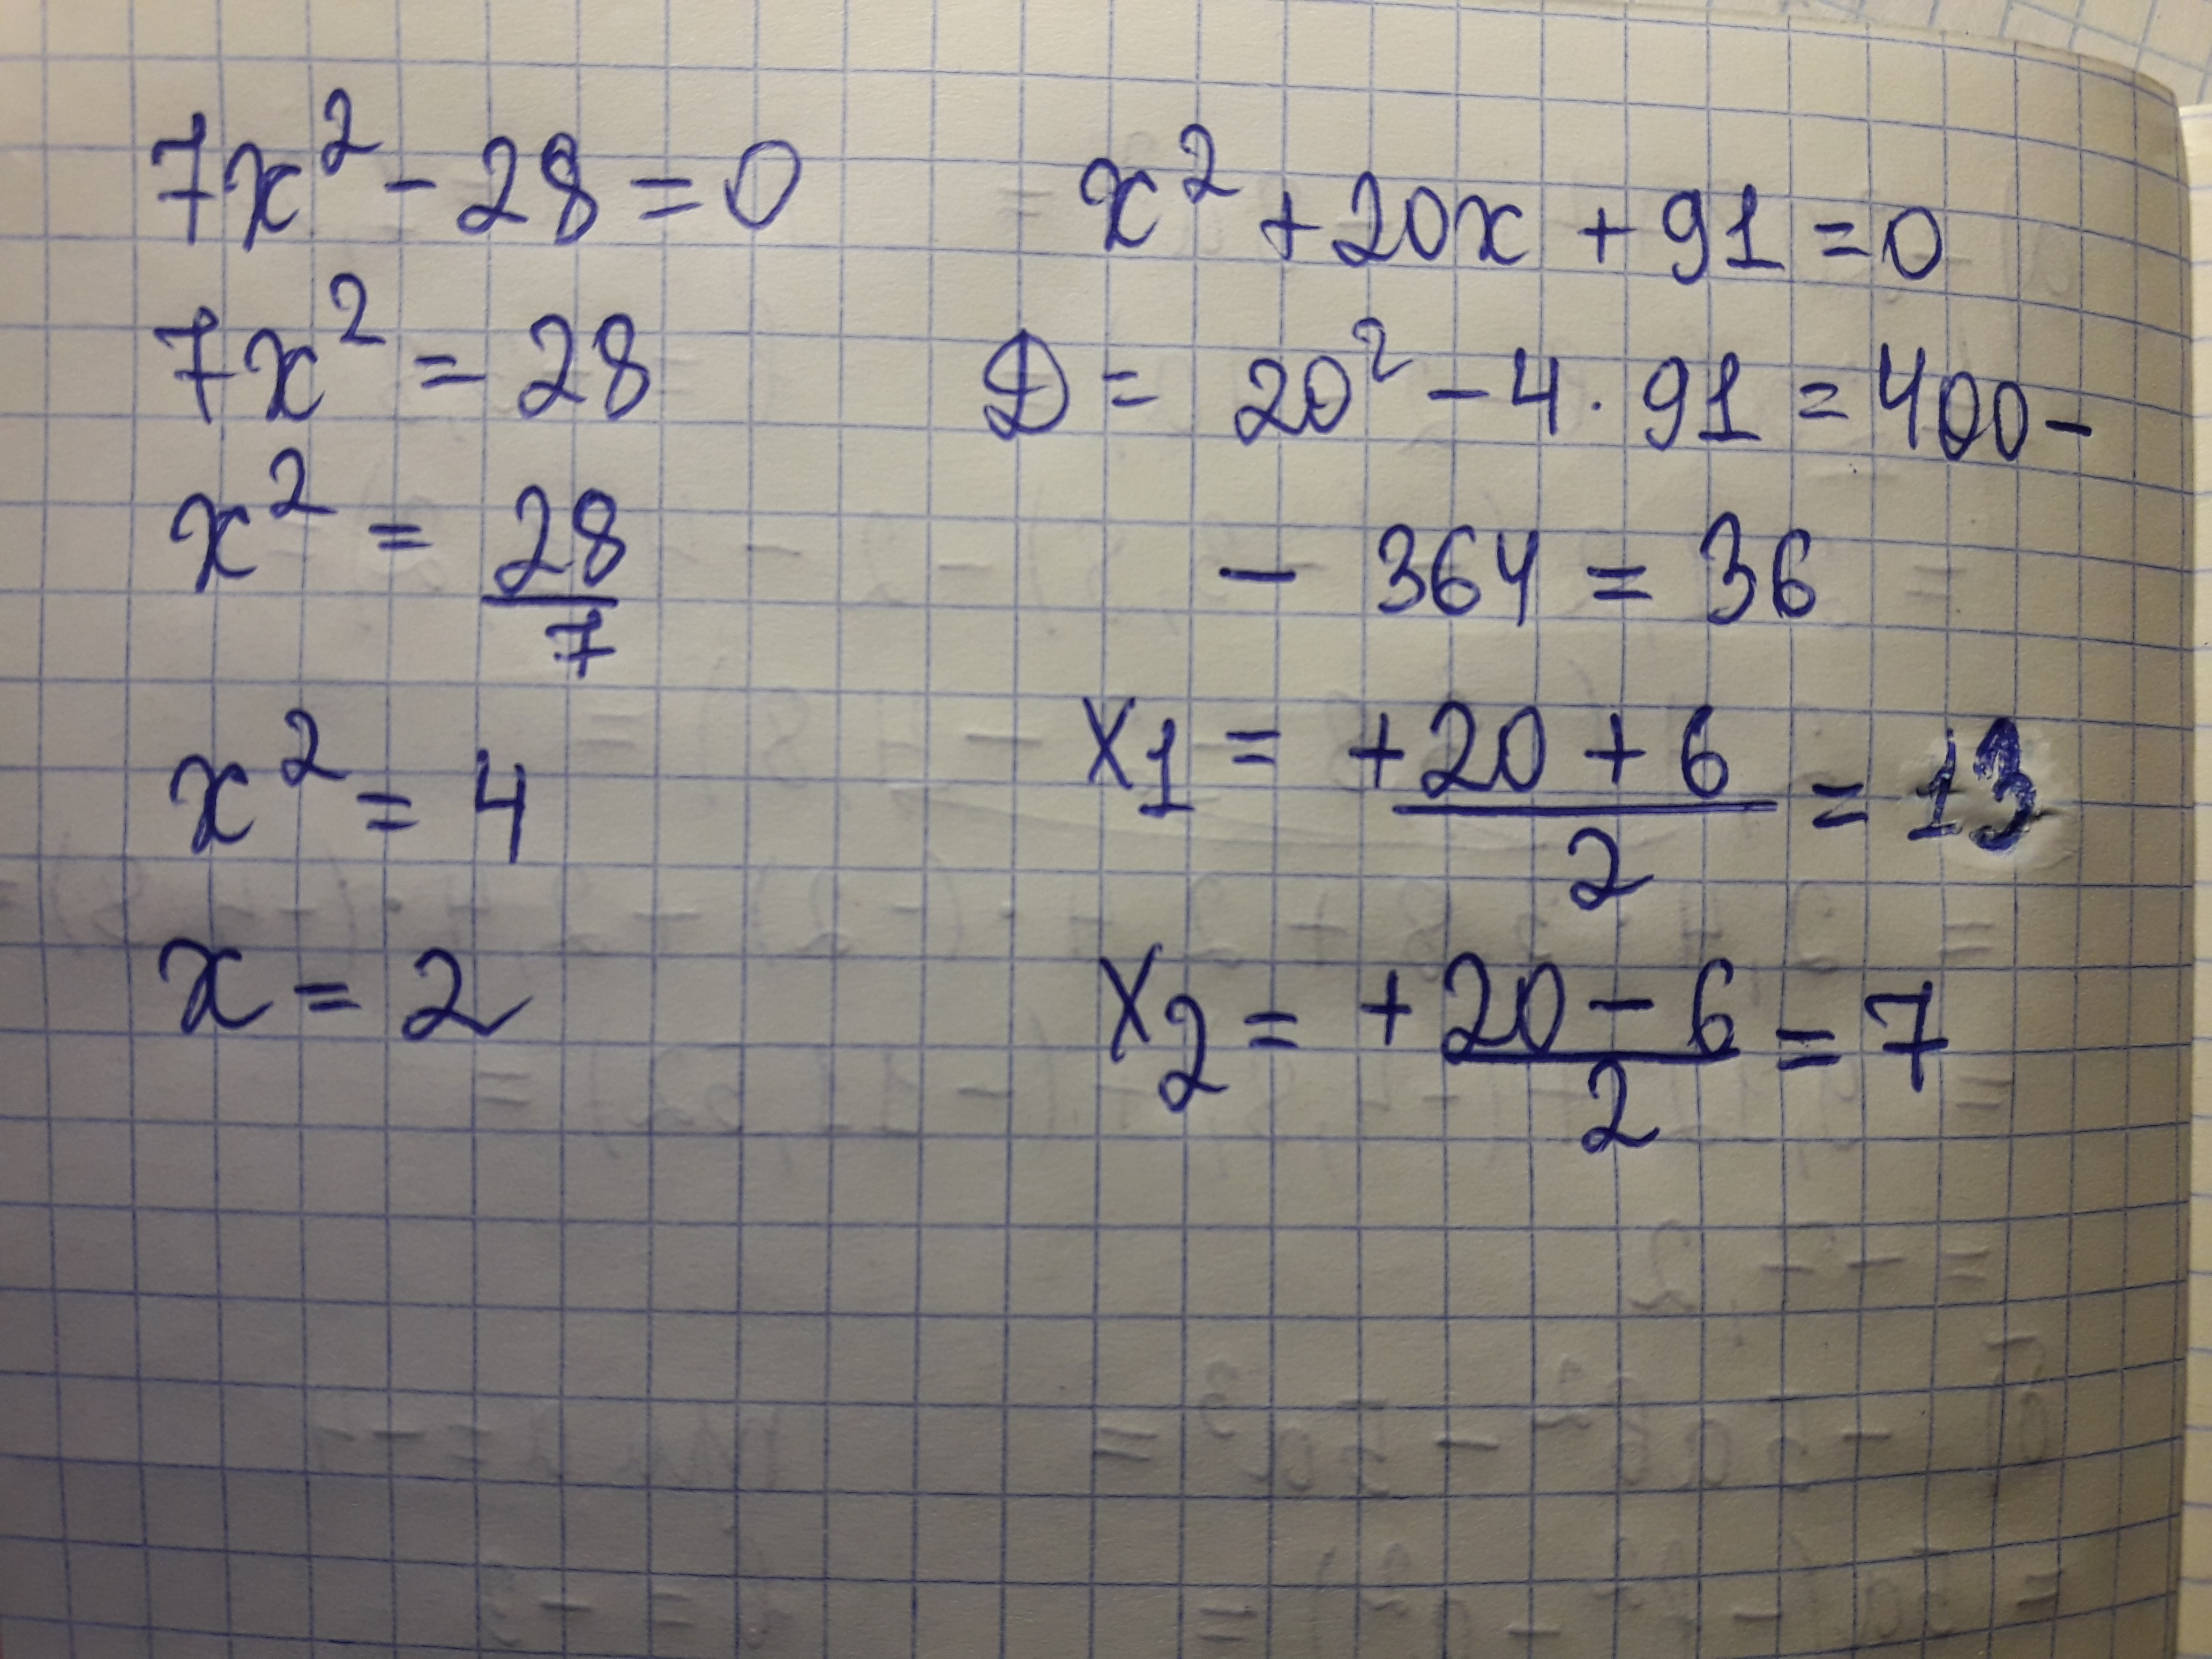 7x² - 28 = 0
7x² = 28
x² = 28/7
x² = 4
x = 2
x² + 20x + 91 = 0
D = 20² - 4 · 91 = 400 -
- 364 = 36
x₁ = +20 + 6/2 = 13
x₂ = +20 - 6/2 = 7